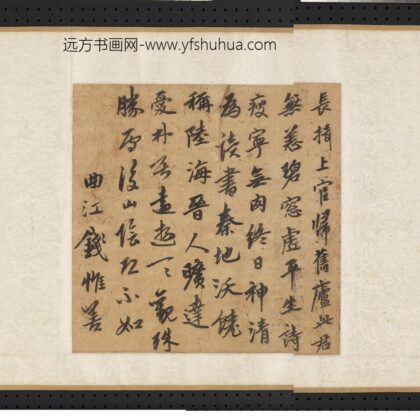 远方书画网-www.yfshuhua.com
長揖上官歸舊廬此君
無恙碧窓虛平生詩
瘦寧無肉終日神清
為讀書秦地沃饒
稱陸海晉人曠達
愛遊觀殊
勝山陰不如
曲江錢惟善